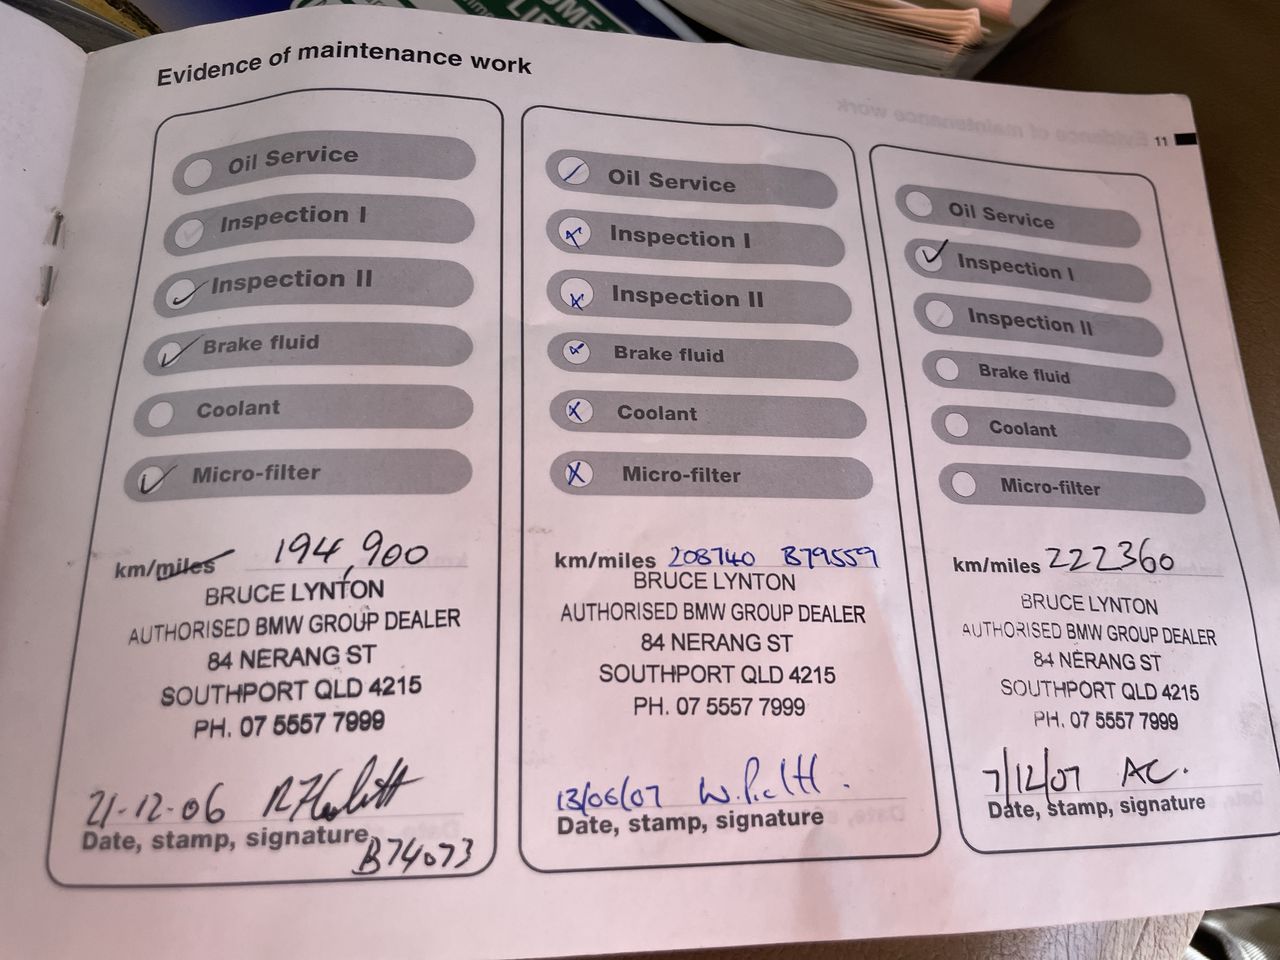 Evidence of maintenance work
11
Oil Service
Inspection I
Inspection II
Brake fluid
Coolant
Micro-filter
km/miles 194,900
BRUCE LYNTON
AUTHORISED BMW GROUP DEALER
84 NERANG ST
SOUTHPORT QLD 4215
PH. 07 5557 7999
21-12-06
Date, stamp, signature
B74073
Oil Service
Inspection I
Inspection II
Brake fluid
Coolant
Micro-filter
km/miles 208740 B79559
BRUCE LYNTON
AUTHORISED BMW GROUP DEALER
84 NERANG ST
SOUTHPORT QLD 4215
PH. 07 5557 7999
13/06/07
Date, stamp, signature
Oil Service
Inspection I
Inspection II
Brake fluid
Coolant
Micro-filter
km/miles 222360
BRUCE LYNTON
AUTHORISED BMW GROUP DEALER
84 NERANG ST
SOUTHPORT QLD 4215
PH. 07 5557 7999
7/12/07 AC.
Date, stamp, signature